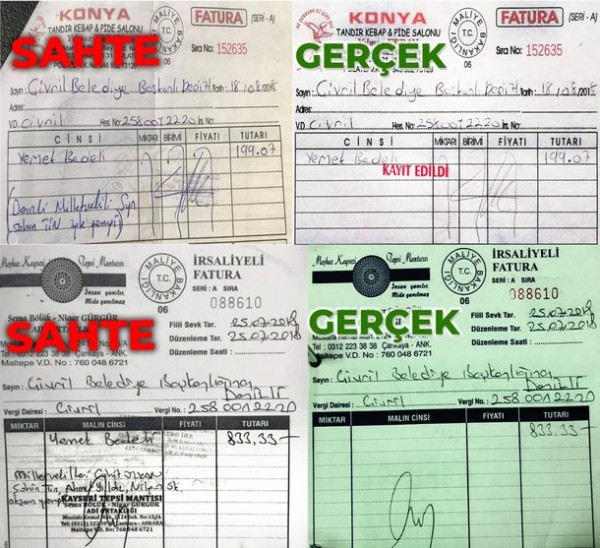 KONYA
TANDIR KEBAP & PİDE SALONU
MALİYE BAKANLIĞI
T.C.
06
FATURA
(SERİ - A)
Sıra No: 152635
SAHTE
Sayın: Çivril Belediye Başkanlı
18.08.2018
Adres:
V.D. Çivril
Hes No: 2580012220
CİNSİ
MİKTARI
BİRİMİ
FİYATI
TUTARI
Yemek Bedeli
199.07
(Denizli Milletvekili Şahin TİN
KONYA
TANDIR KEBAP & PİDE SALONU
MALİYE BAKANLIĞI
T.C.
06
FATURA
(SERİ - A)
Sıra No: 152635
GERÇEK
Sayın: Çivril Belediye Başkanlı
Tarih: 18.08.2018
Adres:
V.D. Çivril
Hes No: 2580012220
CİNSİ
MİKTARI
BİRİMİ
FİYATI
TUTARI
Yemek Bedeli
199.07
KAYIT EDİLDİ
Meşhur Kayseri Tepsi Mantısı
İnsan yanılır,
Mide yanılmaz
MALİYE BAKANLIĞI
T.C.
06
İRSALİYELİ
FATURA
SERİ : A SIRA
088610
Sema BÖLÜK - Nigar GÜRGÜR
SAHTE
Tel : 0312 223 38 38 Çankaya - ANK.
Maltepe V.D. No : 760 048 6721
Fiili Sevk Tar. 25.07.2018
Düzenleme Tar. 25.07.2018
Düzenleme Saati :
Sayın : Çivril Belediye Başkanlığına
Denizli
Vergi Dairesi : Çivril
Vergi No. : 2580012220
MİKTAR
MALIN CİNSİ
FİYATI
TUTARI
Yemek Bedeli
833.33
Milletvekilleri Cahit
Şahin Tin, Ahmet Yıldız, Nilgün Ök
akşam yemeği
KAYSERİ TEPSİ MANTISI
Sema BÖLÜK - Nigar GÜRGÜR
ADİ ORTAKLIĞI
Maltepe V.D. No: 760 048 6721
Meşhur Kayseri Tepsi Mantısı
İnsan yanılır,
Mide yanılmaz
MALİYE BAKANLIĞI
T.C.
06
İRSALİYELİ
FATURA
SERİ : A SIRA
088610
GERÇEK
Tel : 0312 223 38 38 Çankaya - ANK.
Maltepe V.D. No : 760 048 6721
Fiili Sevk Tar. 25.07.2018
Düzenleme Tar. 25.07.2018
Düzenleme Saati :
Sayın : Çivril Belediye Başkanlığına
Denizli
Vergi Dairesi : Çivril
Vergi No. : 2580012220
MİKTAR
MALIN CİNSİ
FİYATI
TUTARI
833.33